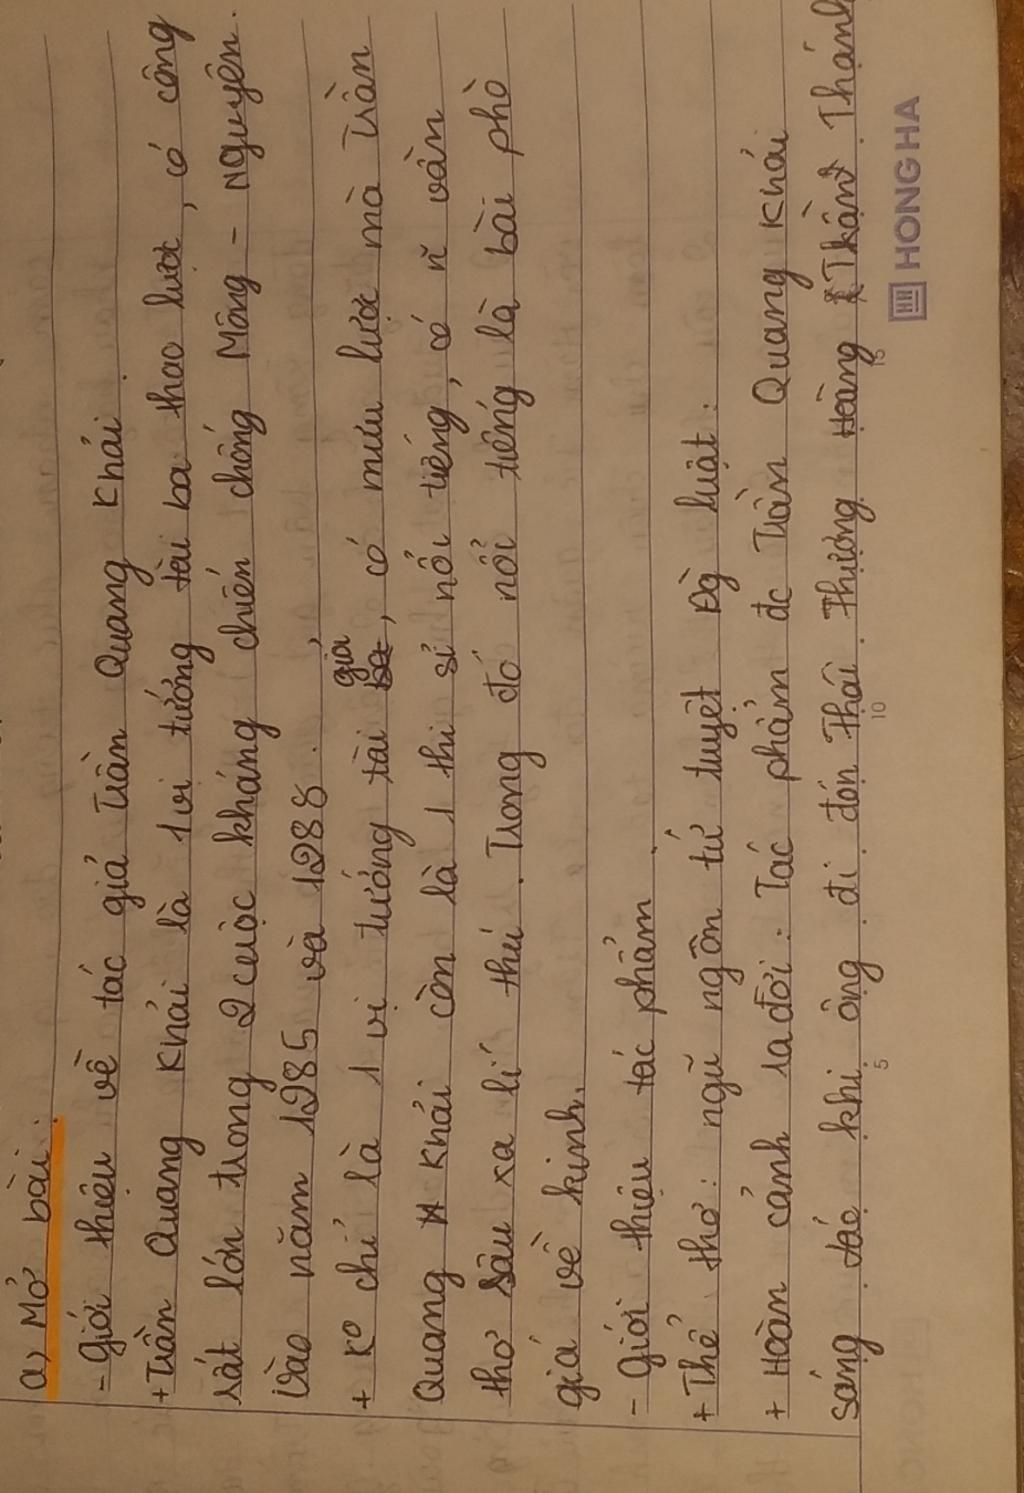 a, Mở bài:
- giới thiệu về tác giả Trần Quang Khải.
+ Trần Quang Khải là 1 vị tướng tài ba thao lược, có công
rất lớn trong 2 cuộc kháng chiến chống Mông - Nguyên.
Vào năm 1285 và 1288.
+ Ko chỉ là 1 vị tướng tài giỏi, có mưu lược mà Trần
Quang Khải còn là 1 thi sĩ nổi tiếng, có n vần
thơ sâu xa lí thú. Trong đó nổi tiếng là bài phò
giá về kinh.
- Giới thiệu tác phẩm.
+ Thể thơ: ngũ ngôn tứ tuyệt Đg luật.
+ Hoàn cảnh ra đời: Tác phẩm đc Trần Quang Khải
sáng tác khi ông đi đón Thái Thượng Hoàng Thánh
HONG HA
5
10
15